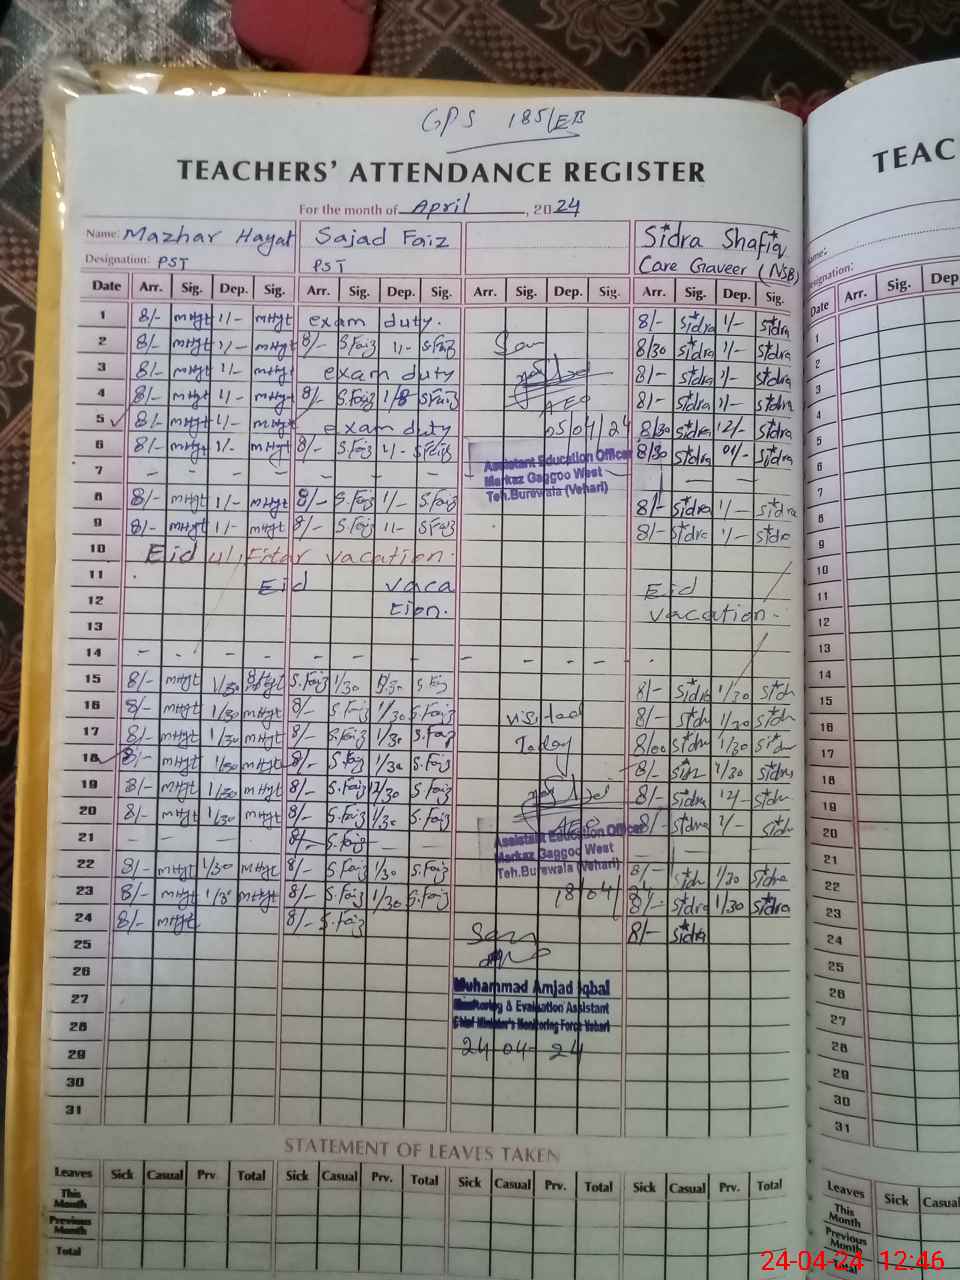 GPS 185/EB
TEACHERS' ATTENDANCE REGISTER
For the month of April, 2024
Name: Mazhar Hayat Sajad Faiz Sidra Shafiq
Designation: PST PST Care Graveer (NSB)
Date Arr. Sig. Dep. Sig. Arr. Sig. Dep. Sig. Arr. Sig. Dep. Sig. Arr. Sig. Dep. Sig.
1 8/- mHyt 1/- mHyt exam duty. 8/- Sidra 1/- Sidra
2 8/- mHyt 1/- mHyt 8/- S.Faiz 1/- S.Faiz 8/30 Sidra 1/- Sidra
3 8/- mHyt 1/- mHyt exam duty 8/- Sidra 1/- Sidra
4 8/- mHyt 1/- mHyt 8/- S.Faiz S.Faiz 8/- Sidra 1/- Sidra
AEO
5 8/- mHyt 1/- mHyt exam duty 05/04/24 8/30 Sidra 12/- Sidra
6 8/- mHyt 1/- mHyt 8/- S.Faiz S.Faiz 8/30 Sidra 01/- Sidra
Assistant Education Officer
Markaz Gaggoo West
Teh.Burewala (Vehari)
7 - - - - - - - - - -
8 8/- mHyt 1/- mHyt 8/- S.Faiz 1/- S.Faiz 8/- Sidra 1/- Sidra
9 8/- mHyt 1/- mHyt 8/- S.Faiz S.Faiz 8/- Sidra 1/- Sidra
10 Eid ul Fitar vacation.
11 Eid vaca Eid
12 tion. vacation.
13
14 - - - - - - - - - -
15 8/- mHyt 1/30 mHyt S.Faiz 1/30 S.Faiz 8/- Sidra 1/30 Sidra
16 8/- mHyt 1/30 mHyt 8/- S.Faiz 1/30 S.Faiz visited 8/- Sidra 1/30 Sidra
17 8/- mHyt 1/30 mHyt 8/- S.Faiz 1/30 S.Faiz Today 8/00 Sidra 1/30 Sidra
18 8/- mHyt 1/30 mHyt 8/- S.Faiz 1/30 S.Faiz 8/- Sidra 1/30 Sidra
19 8/- mHyt 1/30 mHyt 8/- S.Faiz 12/30 S.Faiz 8/- Sidra 12/- Sidra
20 8/- mHyt 1/30 mHyt 8/- S.Faiz 1/30 S.Faiz AEO 8/- Sidra 1/- Sidra
21 - - - - 8/- S.Faiz - - - -
Assistant Education Officer
Markaz Gaggoo West
Teh.Burewala (Vehari)
22 8/- mHyt 1/30 mHyt 8/- S.Faiz 1/30 S.Faiz 8/- Sidra 1/30 Sidra
18/04/24
23 8/- mHyt 1/30 mHyt 8/- S.Faiz 1/30 S.Faiz 8/- Sidra 1/30 Sidra
24 8/- mHyt 8/- S.Faiz 8/- Sidra
25
26
Muhammad Amjad Iqbal
27
Monitoring & Evaluation Assistant
28
Chief Minister's Monitoring Force Vehari
24-04-24
29
30
31
STATEMENT OF LEAVES TAKEN
Leaves Sick Casual Prv. Total Sick Casual Prv. Total Sick Casual Prv. Total Sick Casual Prv. Total
This Month
Previous Month
Total
TEAC
Name:
Designation:
Date Arr. Sig. Dep
1
2
3
4
5
6
7
8
9
10
11
12
13
14
15
16
17
18
19
20
21
22
23
24
25
26
27
28
29
30
31
Leaves Sick Casual
This Month
Previous Month
Total
24-04-24 12:46